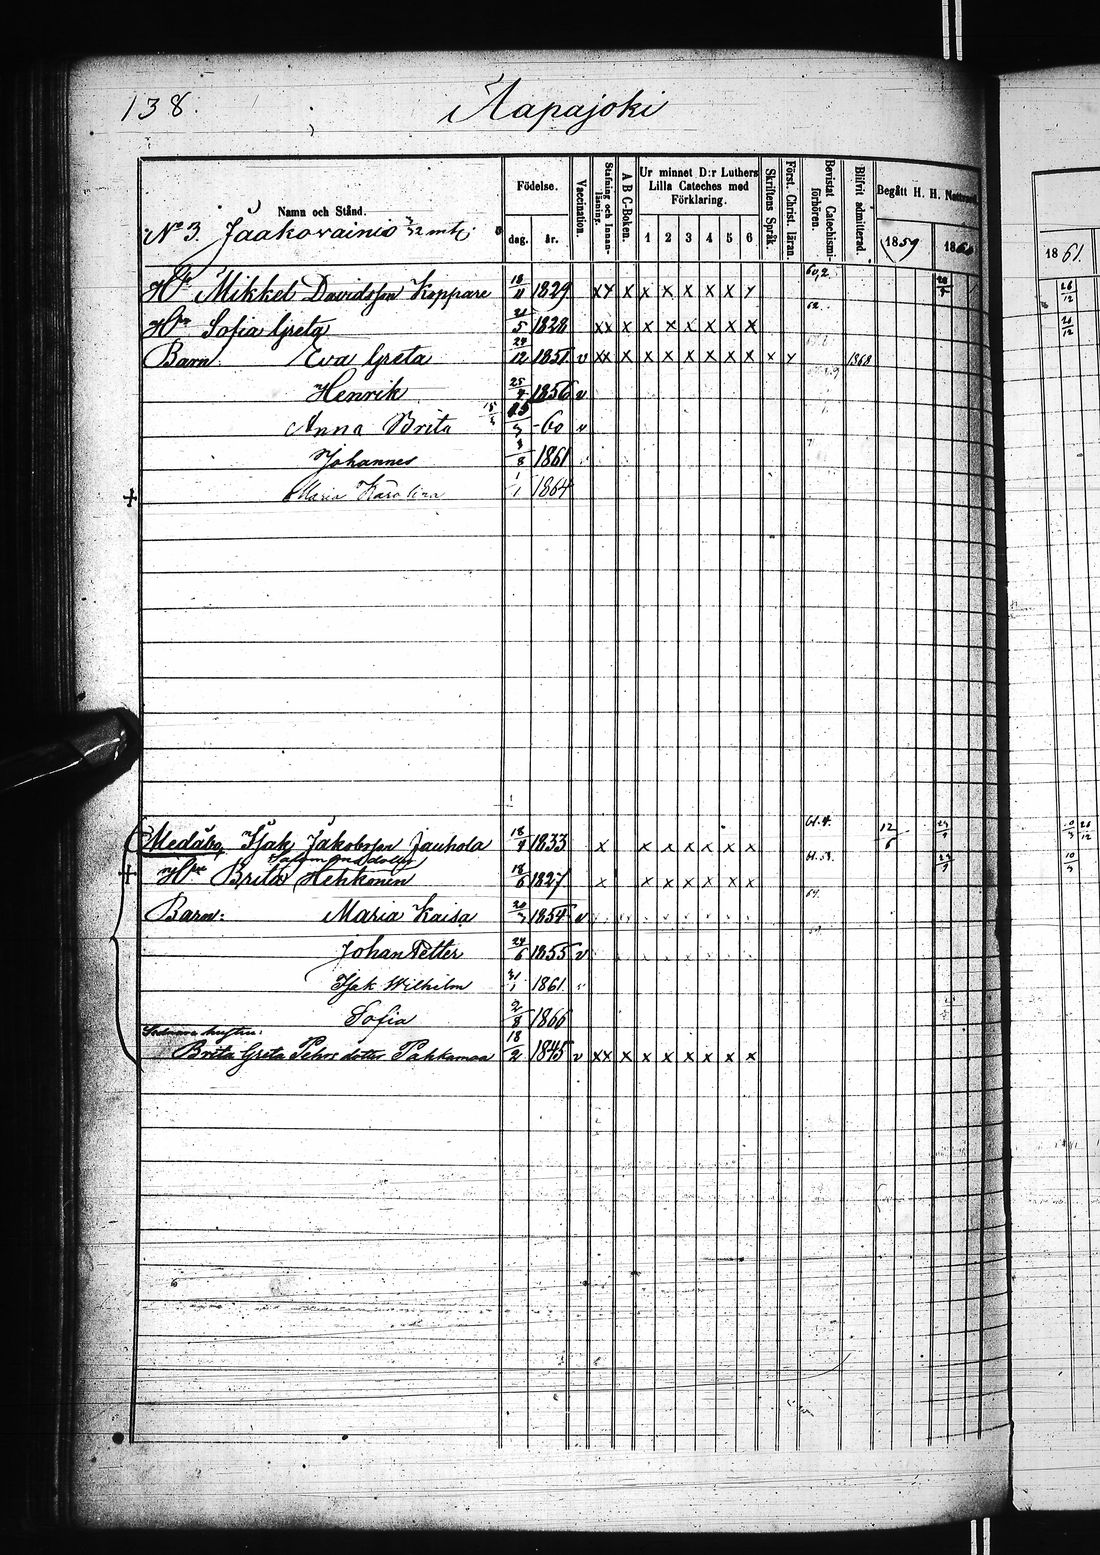 138. Aapajoki
Namn och Stånd. Födelse. dag. år. Vaccination. Stafning och Innan-läsning. A B C-Boken. Ur minnet D:r Luthers Lilla Cateches med Förklaring. 1 2 3 4 5 6 Skriftens Språk. Först. Christ. läran. Bevistat Catechismi-förhören. Blifvit admitterad. Begått H. H. 1859 1860 1861.
No 3. Jaakovainio
Mikkel Davidsson Koppare 18/11 1829 xx x x x x x x x
Sofia Greta 21/5 1828 xx x x x x x x x 62.
Barn Eva Greta 24/12 1851 v xx x x x x x x x x x 1868
Henrik 25/4 1856 v
Anna Brita 15/3 -60 v
Johannes 1861
+ Maria Karolina 1/1 1864
Medåbo, Isak Jakobsson Jauhola 18/4 1833 x x x x x x x
+ Brita Salomonsdotter Hehkonen 18/6 1827 x x x x x x x
Barn: Maria Kaisa 20/3 1854 v
Johan Petter 24/6 1855 v
Isak Wilhelm 31/1 1861
Sofia 2/8 1866
Sednare hustru:
Brita Greta Pehrsdotter Pahkamaa 18/2 1845 v xx x x x x x x x